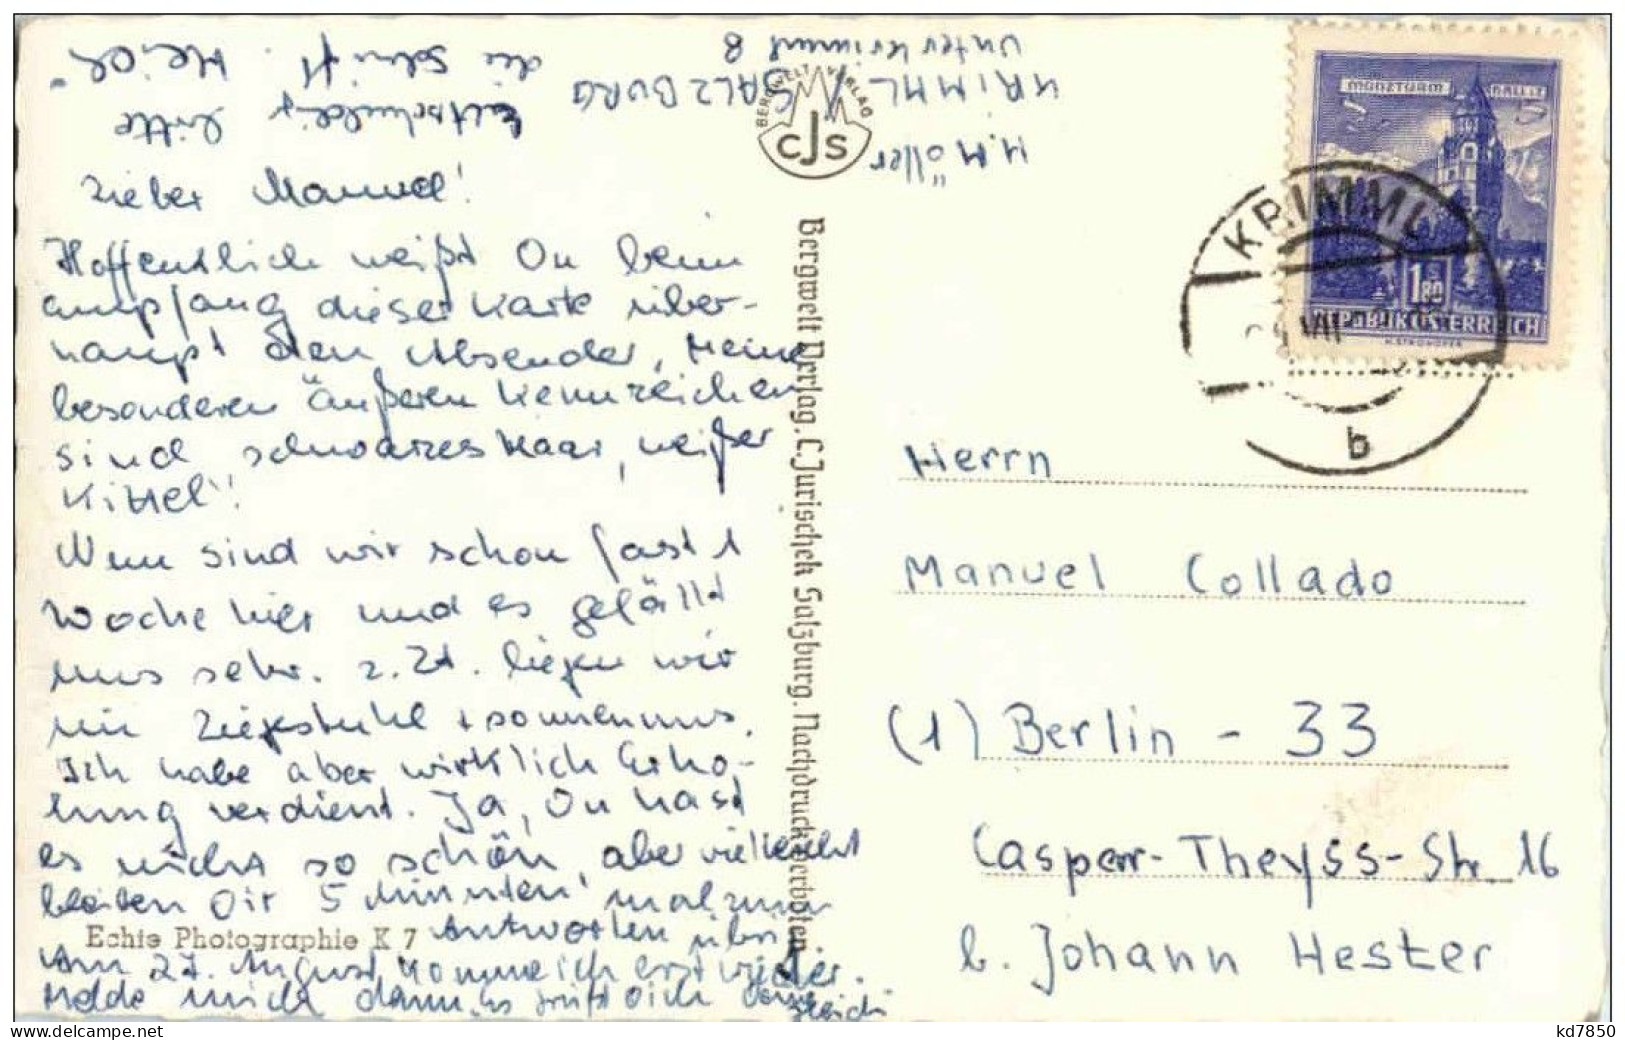 H. Möller
KRIMML / SALZBURG
Unterkrimml 8
Entschuldigt bitte
die Schrift.
Lieber Manuel!
Hoffentlich weißt Du beim
Empfang dieser Karte über-
haupt den Absender, Meine
besonderen äußeren Kennzeichen
sind schwarzes Haar, weißer
Kittel!!
Nun sind wir schon fast 1
Woche hier und es gefällt
uns sehr. z. Zt. liegen wir
im Liegestuhl + sonnen uns.
Ich habe aber wirklich Erho-
lung verdient. Ja, Du hast
es nicht so schön, aber vielleicht
bleiben Dir 5 Minuten mal zum
Antworten übrig.
Am 27. August komme ich erst wieder.
Melde mich dann. Es grüßt Dich
Echte Photographie K 7
BERGWELT VERLAG
CJS
Bergwelt Verlag. C. Jurischek Salzburg. Nachdruck verboten
MÜNZTURM HALL I. T.
S 1.80
REPUBLIK ÖSTERREICH
KRIMML
VII
b
Herrn
Manuel Collado
(1) Berlin - 33
Casper-Theyss-Str. 16
b. Johann Hester
kd7850